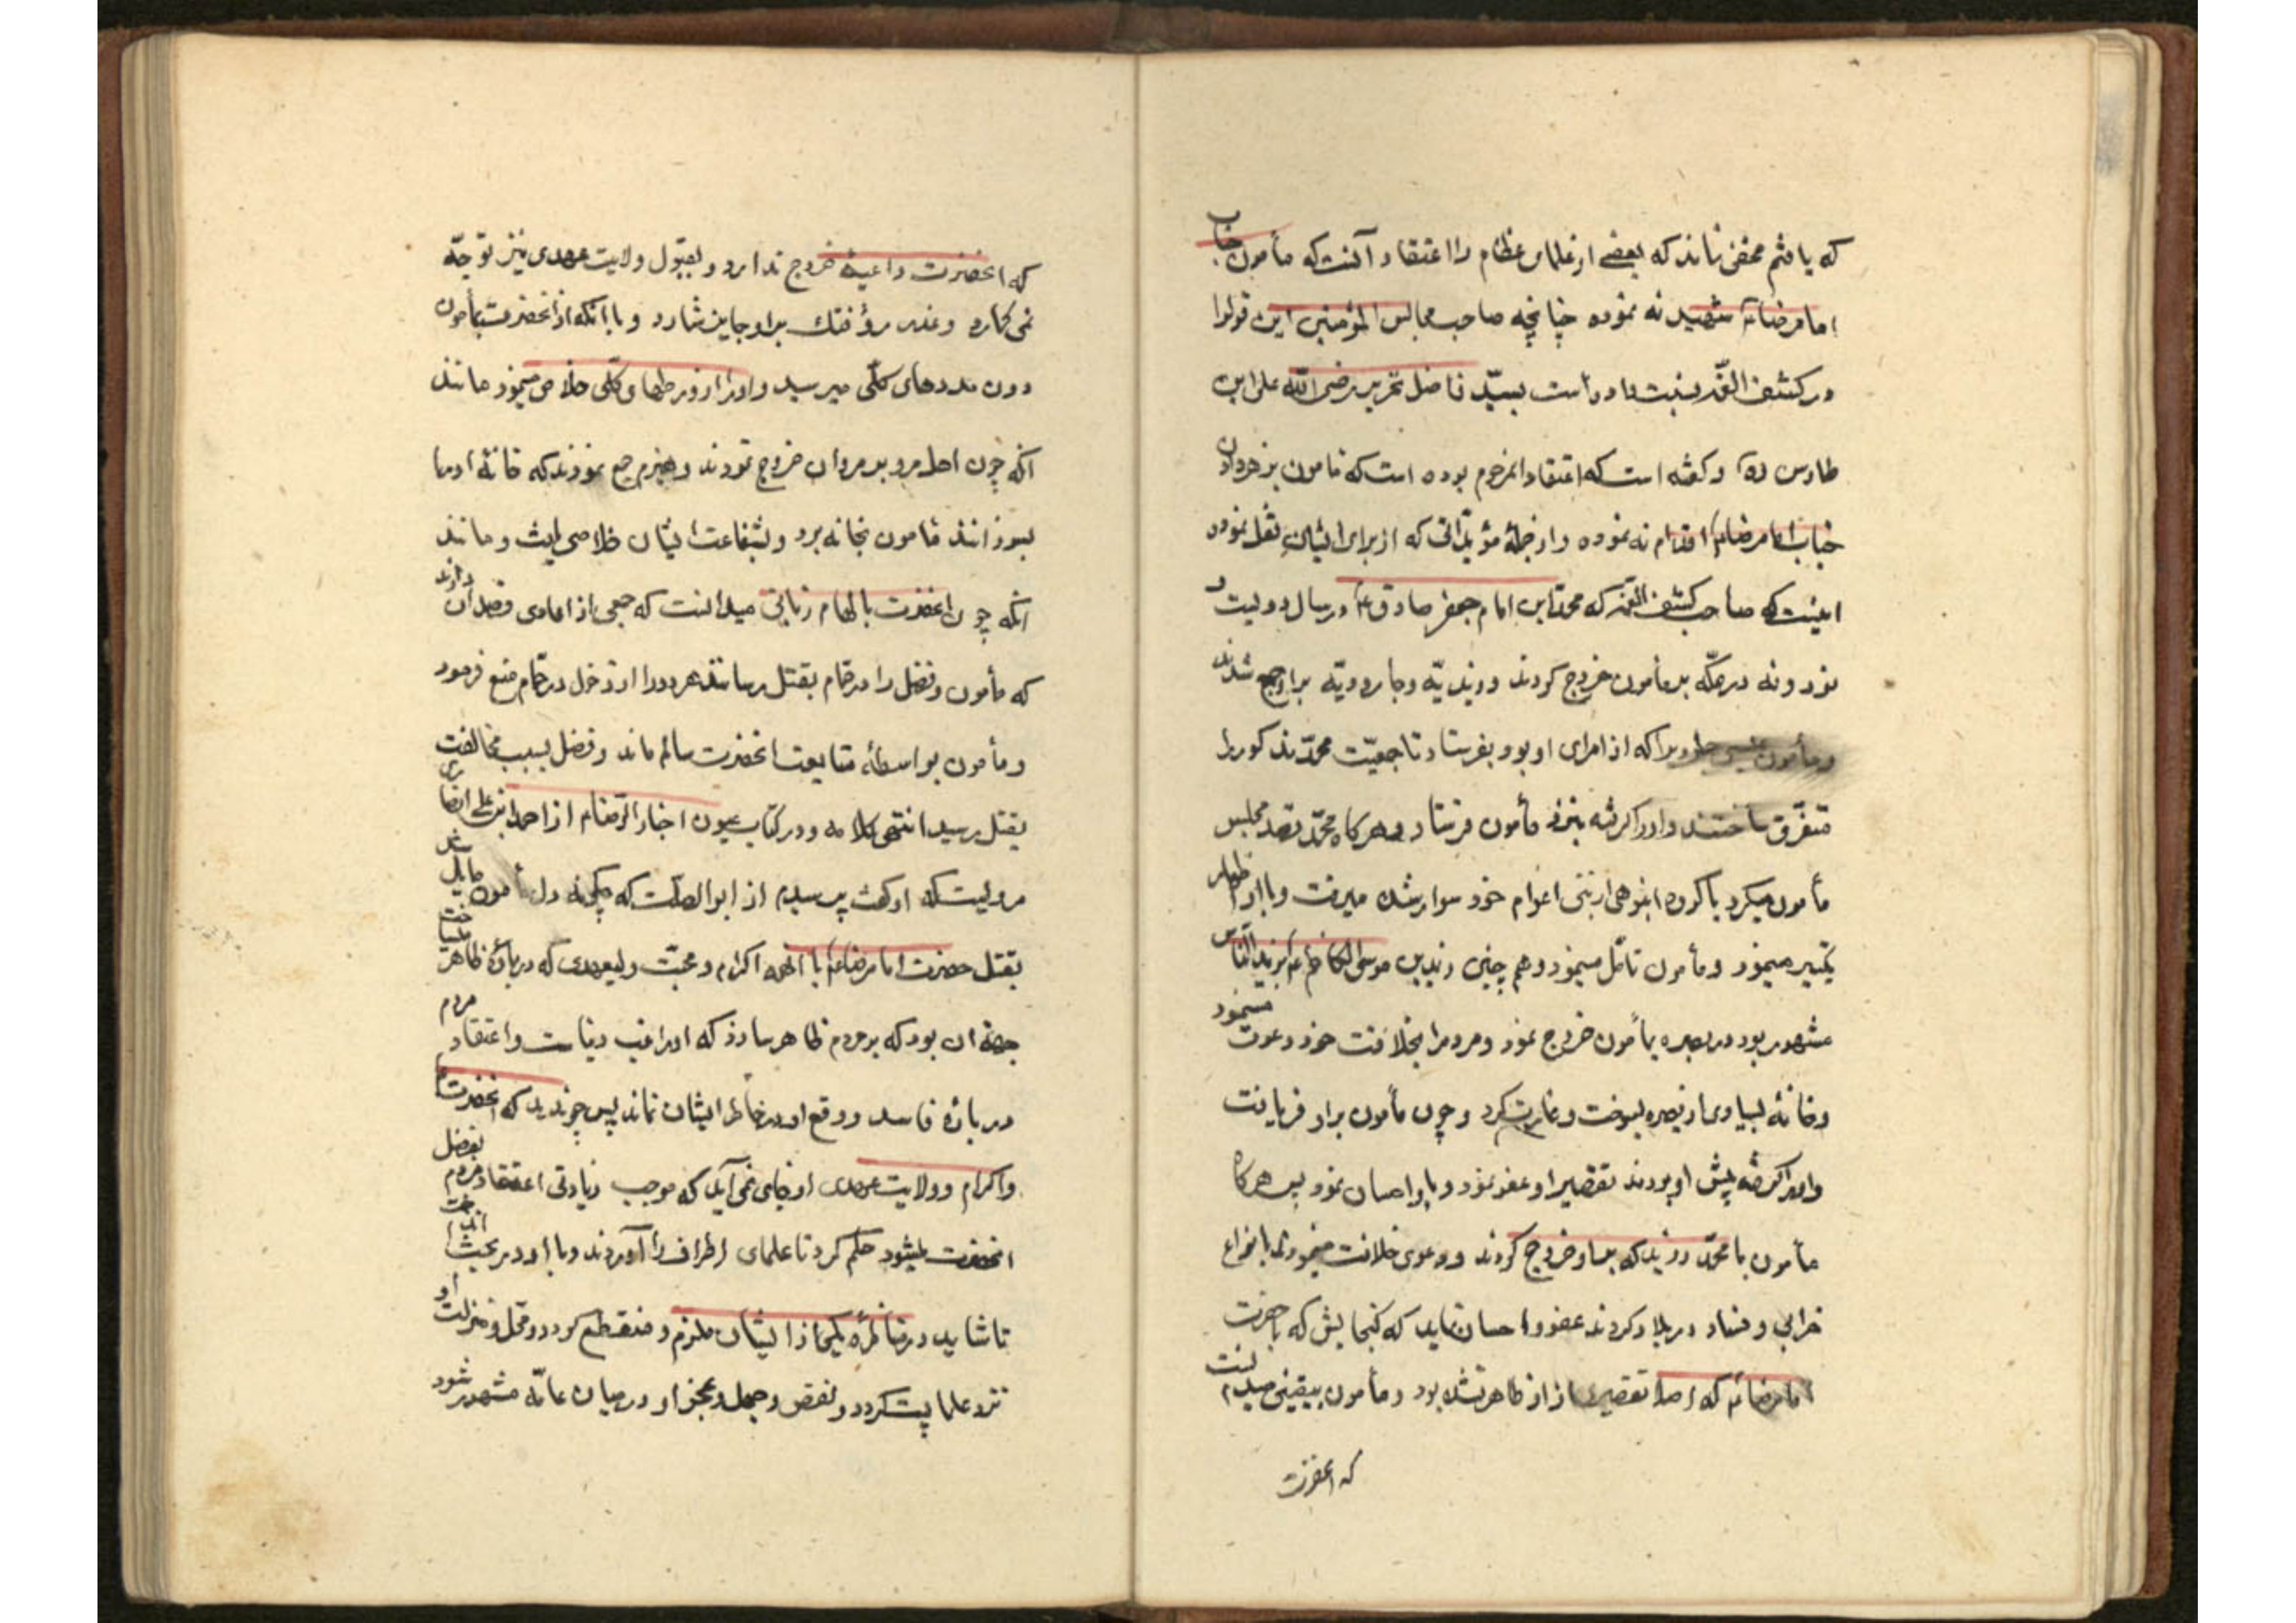 که یافتم مخفی نماند که بعضی از علمای عظام را اعتقاد آنست که مأمون جناب
امام رضا را شهید نه نموده چنانچه صاحب مجالس المؤمنین این قولرا
در کشف الغمه نسبت داده است بسید فاضل نحریر رضی الله علی ابن
طاوس ره و گفته است که اعتقاد انمرحوم بوده است که مامون بر خوردن
جناب امام رضا اقدام نه نموده و از جملهٔ مؤیداتی که از برای ایشان نقل نموده
اینست که صاحب کشف الغمه که محمد ابن امام جعفر صادق ع در سال دویست
نود و نه در مکه بر مأمون خروج کردند و زیدیه و جارودیه بر او جمع شدند
و مأمون عیسی جلودی را که از امرای او بود بفرستاد تا جمعیت محمد مذکور را
متفرق ساختند و او را گرفته بنزد مأمون فرستاد و هر کاه محمد بقصد مجلس
مأمون میکرد با کروه انبوهی از بنی اعوام خود سوار شده میرفت و با او اظهار
تکبر مینمود و مأمون تأمل مینمود و هم چنین زید بن موسی الکاظم ع که بزید النار
مشهور بود در بصره بأمون خروج نمود و مردمرا بخلافت خود دعوت مینمود
و خانهٔ بسیاری از بصره بسوخت و غارت کرد و چون مأمون بر او فر یافت
و او را گرفته پیش او بردند تقصیر او عفو نمود و باو احسان نمود پس هر کاه
مأمون با محمد و زید که بر او خروج کردند و دعوی خلافت مینمودند بانواع
خرابی و فساد در بلاد کردند عفو و احسان نماید که کنجایش که با حضرت
امام رضا که اصلا تقصیری از او ظاهر نشده بود و مأمون بیقین میدانست
که انحضرت
که انحضرت داعیهٔ خروج ندارد و بقبول ولایت عهدی نیز توجه
نمی کمارد و غدر و فتک بر او جایز شمارد و با آنکه از انحضرت بمأمون
دون مددهای کلی میرسید و او را از ورطهای کلی خلاص مینمود مانند
انکه چون اهل مرو بر مروان خروج نمودند و هیزم جمع نمودند که خانهٔ او را
بسوزانند مامون بخانه برد و بشفاعت ایشان خلاصی یافت و مانند
انکه چون انحضرت بالهام ربانی میدانست که جمعی از اعادی قصد آن دارند
که مأمون و فضل را در حمام بقتل رسانند هر دو را از دخول در حمام منع فرمود
و مأمون بواسطهٔ متابعت انحضرت سالم ماند و فضل بسبب مخالفت
بقتل رسید انتهی کلامه و در کتاب عیون اخبار الرضا ع از احمد ابن علی انصاری
مرویست که او گفت پرسیدم از ابو الصلت که چکونه دل مأمون مایل شد
بقتل حضرت امام رضا ع با انهمه اکرام و محبت و لیعهدی که دربارهٔ ظاهر میساخت
جههٔ ان بود که بر مردم ظاهر سازد که او راغب دنیا است و اعتقاد مردم
در باره فاسد و وقع او در خاطر ایشان نماند پس چون دید که انحضرت
و اکرام و ولایت عهدی او جای نمی آید که موجب زیادتی اعتقاد مردم بفضل
انحضرت میشود حکم کرد تا علمای اطراف را آوردند و با او در بحث انداخت
تا شاید در مناظره یکی از ایشان ملزم و منقطع کردد و محل و منزلت او
نزد علما پست کردد و نقص و جهل و عجز او در میان عامه مشهور شود